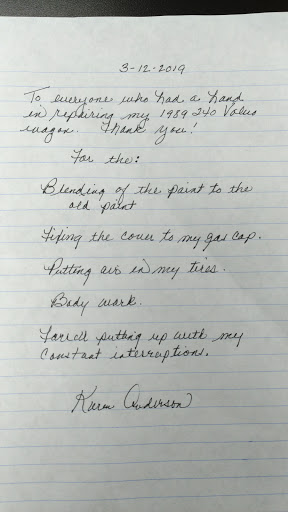 3-12-2019
To everyone who had a hand
in repairing my 1989 240 Volvo
wagon. Thank you!
For the:
Blending of the paint to the
old paint
Fixing the cover to my gas cap.
Putting air in my tires.
Body work.
putting up with my
Constant interruptions.
Karen Anderson